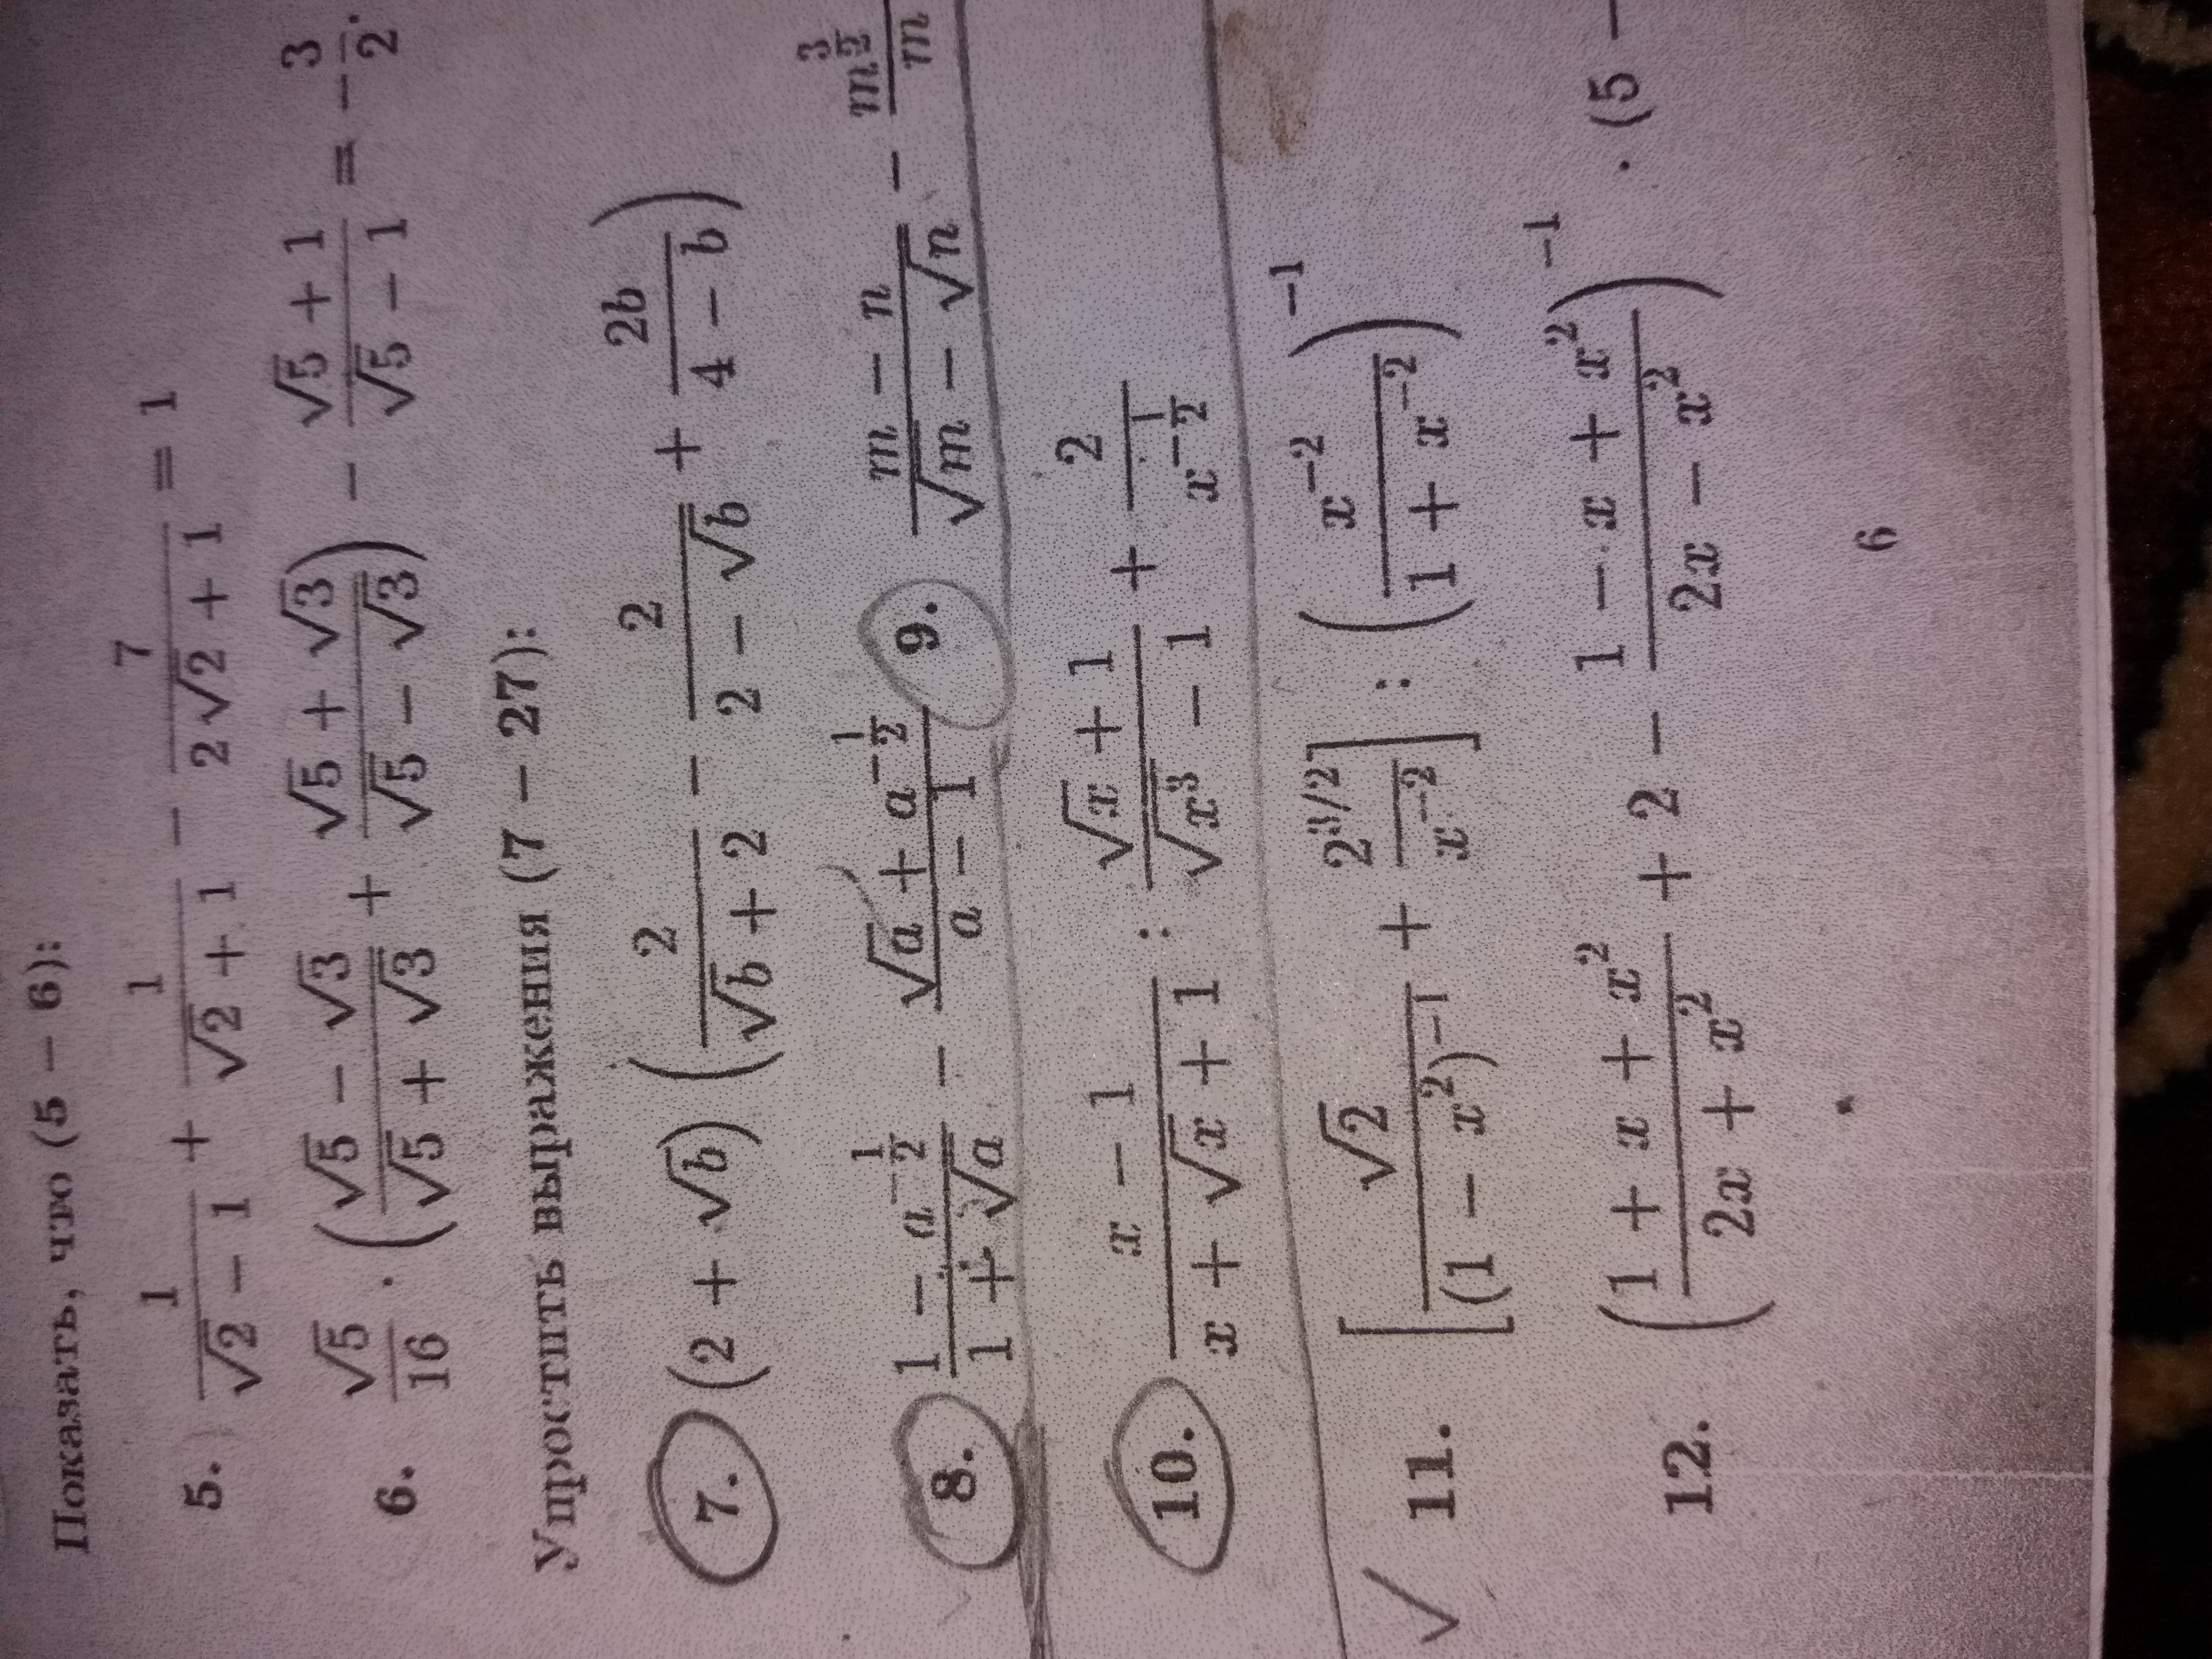 Показать, что (5 − 6):
5. 1/(√2 − 1) + 1/(√2 + 1) − 7/(2√2 + 1) = 1
6. √5/16 · ((√5 − √3)/(√5 + √3) + (√5 + √3)/(√5 − √3)) − (√5 + 1)/(√5 − 1) = −3/2.
Упростить выражения (7 − 27):
7. (2 + √b) (2/(√b + 2) − 2/(2 − √b) + 2b/(4 − b))
8. (1 − a^(−1/2))/(1 + √a) − (√a + a^(−1/2))/(a − 1) 9. (m − n)/(√m − √n) − m^(3/2)/m
10. (x − 1)/(x + √x + 1) : (√x + 1)/(√x³ − 1) + 2/x^(−1/2)
11. [√2/(1 − x²)^(−1) + 2^(3/2)/x^(−2)] : (x^(−2)/(1 + x^(−2)))^(−1)
12. ((1 + x + x²)/(2x + x²) + 2 − (1 − x + x²)/(2x − x²))^(−1) · (5 −
6